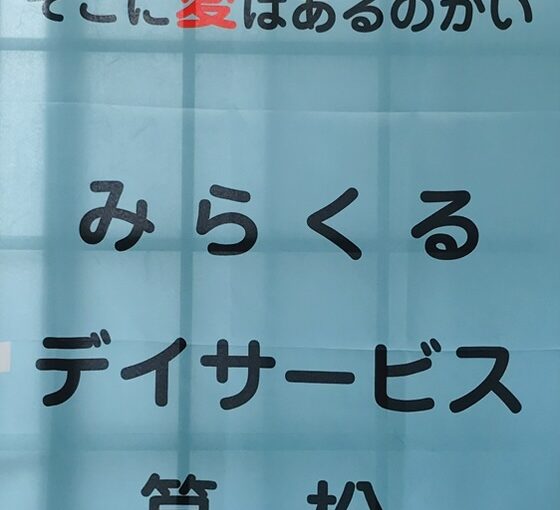 そこに愛はあるのかい
みらくる
デイサービス